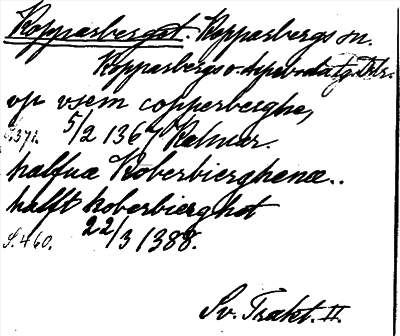 Kopparberget. Kopparbergs sn.
Kopparbergs o.
up vsem copperberghe,
S.371. 5/2 1367 Kalmar.
halfua Koberbierghena..
halft koberbierghot
S.460. 22/3 1388.
Sv. Trakt. II.